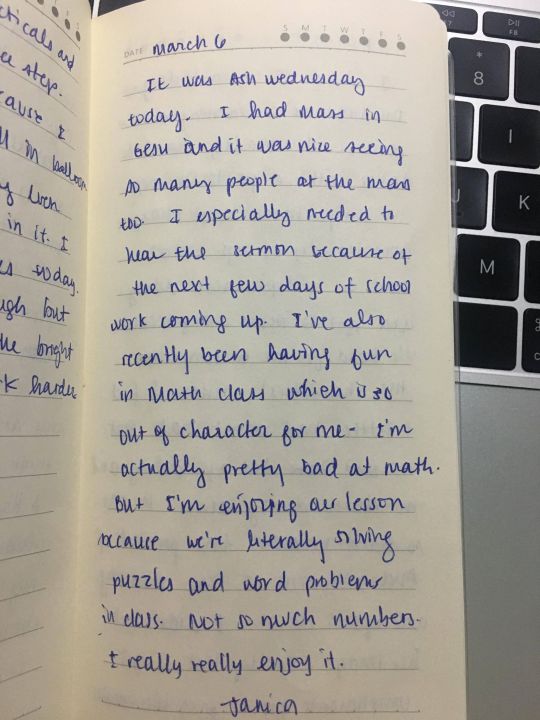 cticals and
step.
cause I
in balloon
in it. I
today.
ugh but
the bright
k harder
S M T W T F S
DATE March 6
It was Ash Wednesday
today. I had mass in
Gesu and it was nice seeing
so many people at the mass
too. I especially needed to
hear the sermon because of
the next few days of school
work coming up. I've also
recently been having fun
in Math class which is so
out of character for me - I'm
actually pretty bad at math.
But I'm enjoying our lesson
because we're literally solving
puzzles and word problems
in class. Not so much numbers.
I really really enjoy it.
Janica
F7
F8
*
8
I
U
K
M